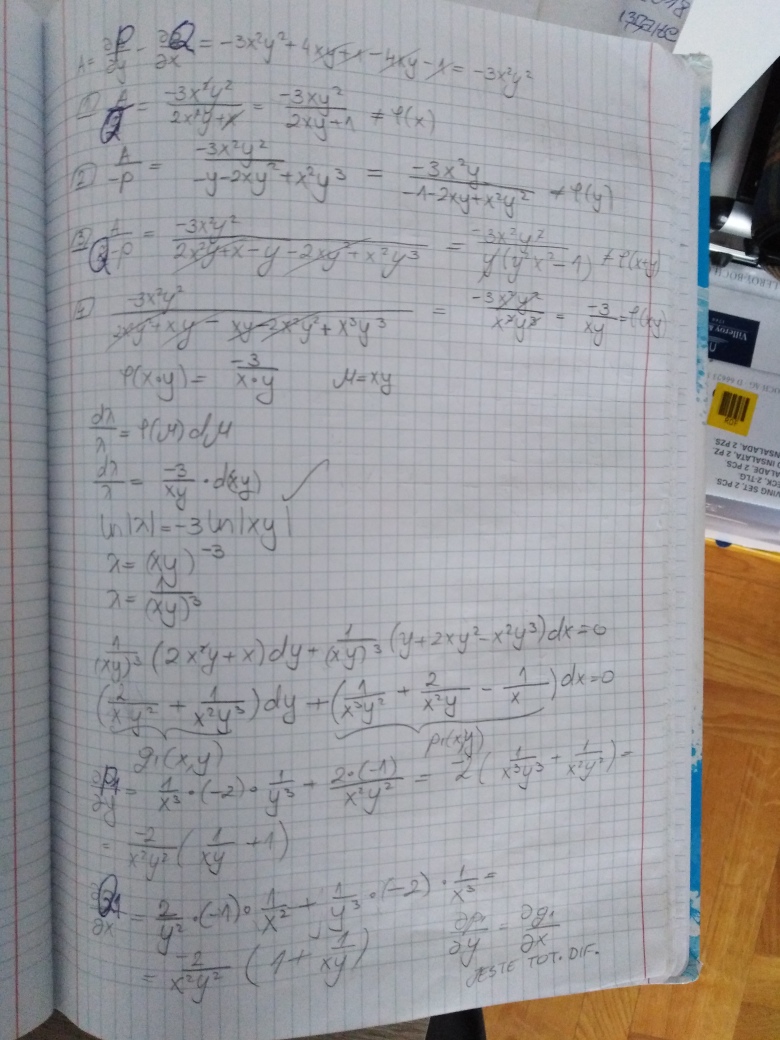 A = ∂P/∂y - ∂Q/∂x = -3x²y² + 4xy + 1 - 4xy - 1 = -3x²y²
① A/Q = -3x²y²/(2x²y+x) = -3xy²/(2xy+1) ≠ φ(x)
② A/-P = -3x²y²/(-y-2xy²+x²y³) = -3x²y/(-1-2xy+x²y²) ≠ φ(y)
③ A/(Q-P) = -3x²y²/(2x²y+x-y-2xy²+x²y³) = -3x²y²/(y(y²x²-1)) ≠ φ(x+y)
④ -3x²y²/(2x²y²+xy-xy-2x²y²+x³y³) = -3x²y²/(x³y³) = -3/(xy) = φ(xy)
φ(x·y) = -3/(x·y) μ=xy
dλ/λ = φ(μ)dμ
dλ/λ = -3/(xy) · d(xy)
ln|λ| = -3ln|xy|
λ = (xy)⁻³
λ = 1/(xy)³
1/(xy)³ (2x²y+x)dy + 1/(xy)³ (y+2xy²-x²y³)dx=0
(2/(xy²) + 1/(x²y³))dy + (1/(x³y²) + 2/(x²y) - 1/x)dx=0
q₁(x,y) p₁(x,y)
∂P₁/∂y = 1/x³ · (-2) · 1/y³ + 2·(-1)/(x²y²) = -2(1/(x³y³) + 1/(x²y²)) =
= -2/(x²y²) (1/(xy) + 1)
∂Q₁/∂x = 2/y² · (-1) · 1/x² + 1/y³ · (-2) · 1/x³ =
= -2/(x²y²) (1 + 1/(xy)) ∂p₁/∂y = ∂q₁/∂x
JESTE TOT. DIF.
Villeroy &
INSALADA, 2 PZS.